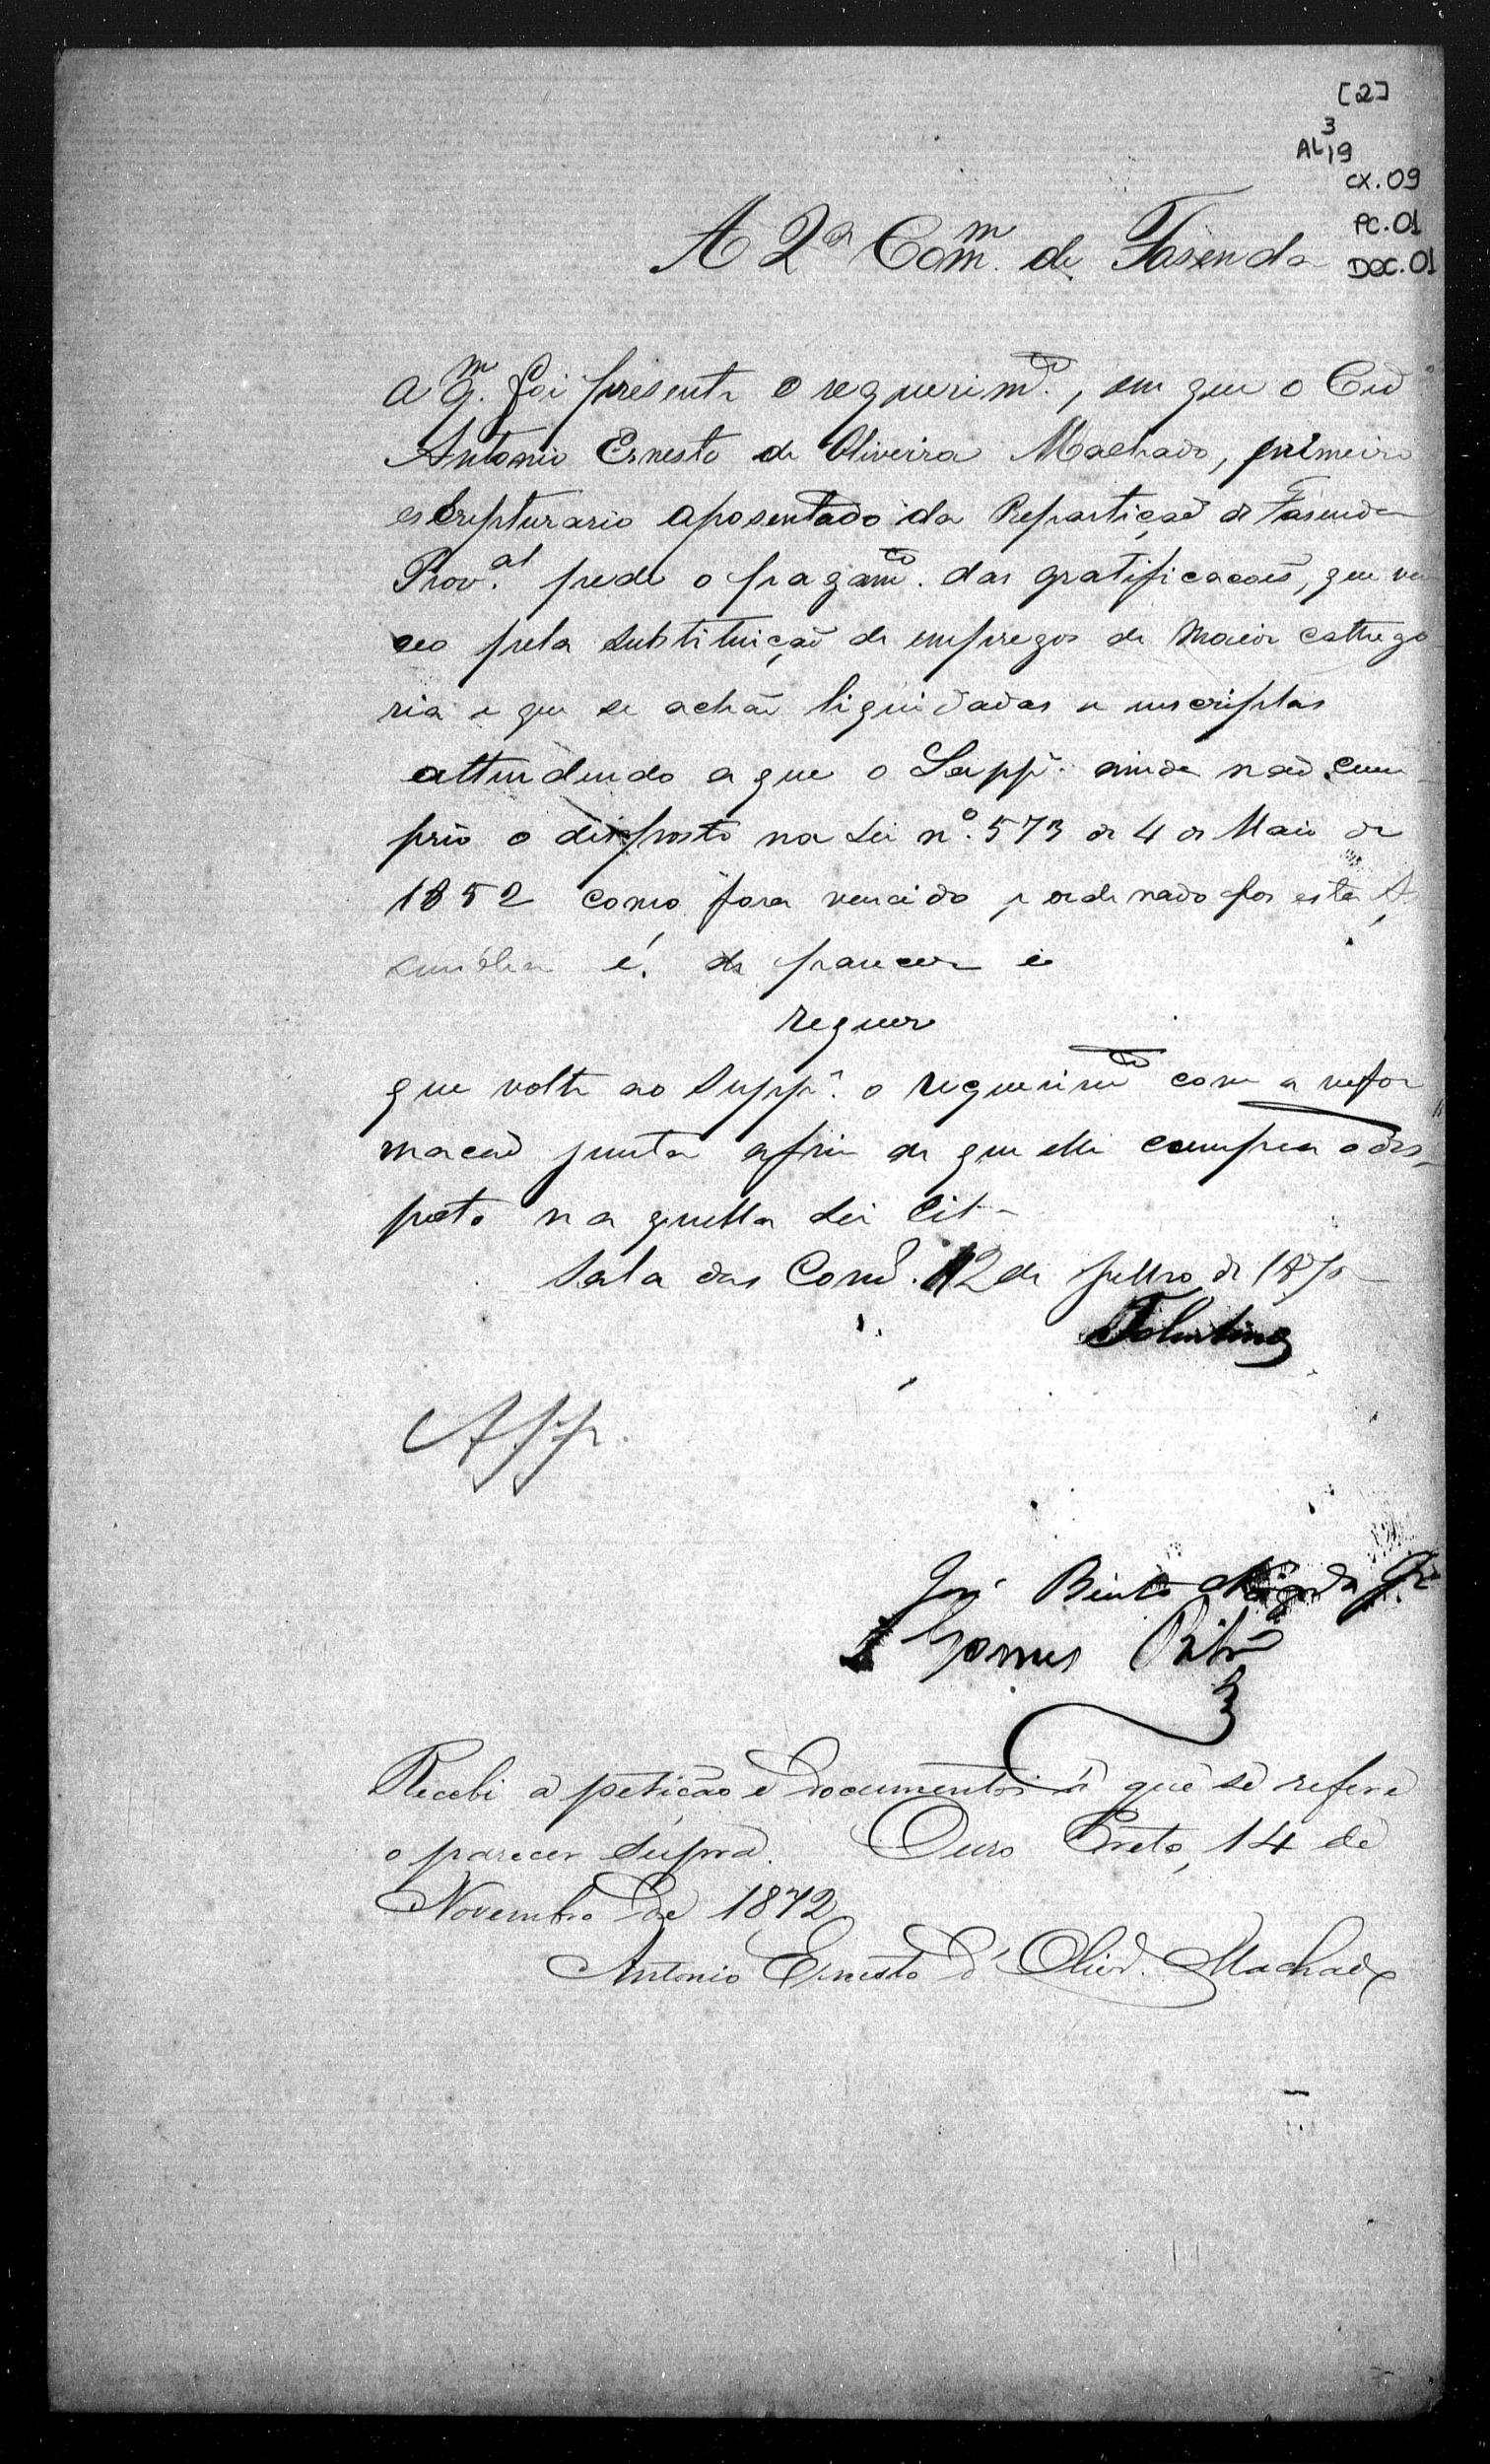 [2]
3
AL 19
CX. 09
PC. 01
DOC. 01
A 2ª Comm. de Fasenda
a qm. foi presente o requerimto., em que o Cid
Antonio Ernesto de Oliveira Machado, primeiro
escripturario aposentado da Repartiçaõ de Fasenda
Prov.al pede o pagamto. das gratificacoẽs, que ven
ceo pela substituiçaõ de empregos de maior cathego
ria e que se achaõ liquidadas e inscriptas
attendendo a que o Suppe. ainda naõ cum
prio o disposto na Lei nº. 573 de 4 de Maio de
1852 como fora vencido e ordenado por esta As
sembléa é de parecer e
requer
que volte ao Suppe. o requerimto com a infor
macaõ junta afim de que elle cumpra o dis
posto na quella Lei cit.
Sala das Com. 12 de Julho de 187
Tolentino
App.
José Bento Nogueira Jr
Gomes
Recebi a petição e documentos á que se refere
o parecer supra. Ouro Preto, 14 de
Novembro de 1872
Antonio Ernesto d'Olivr.ª Machado